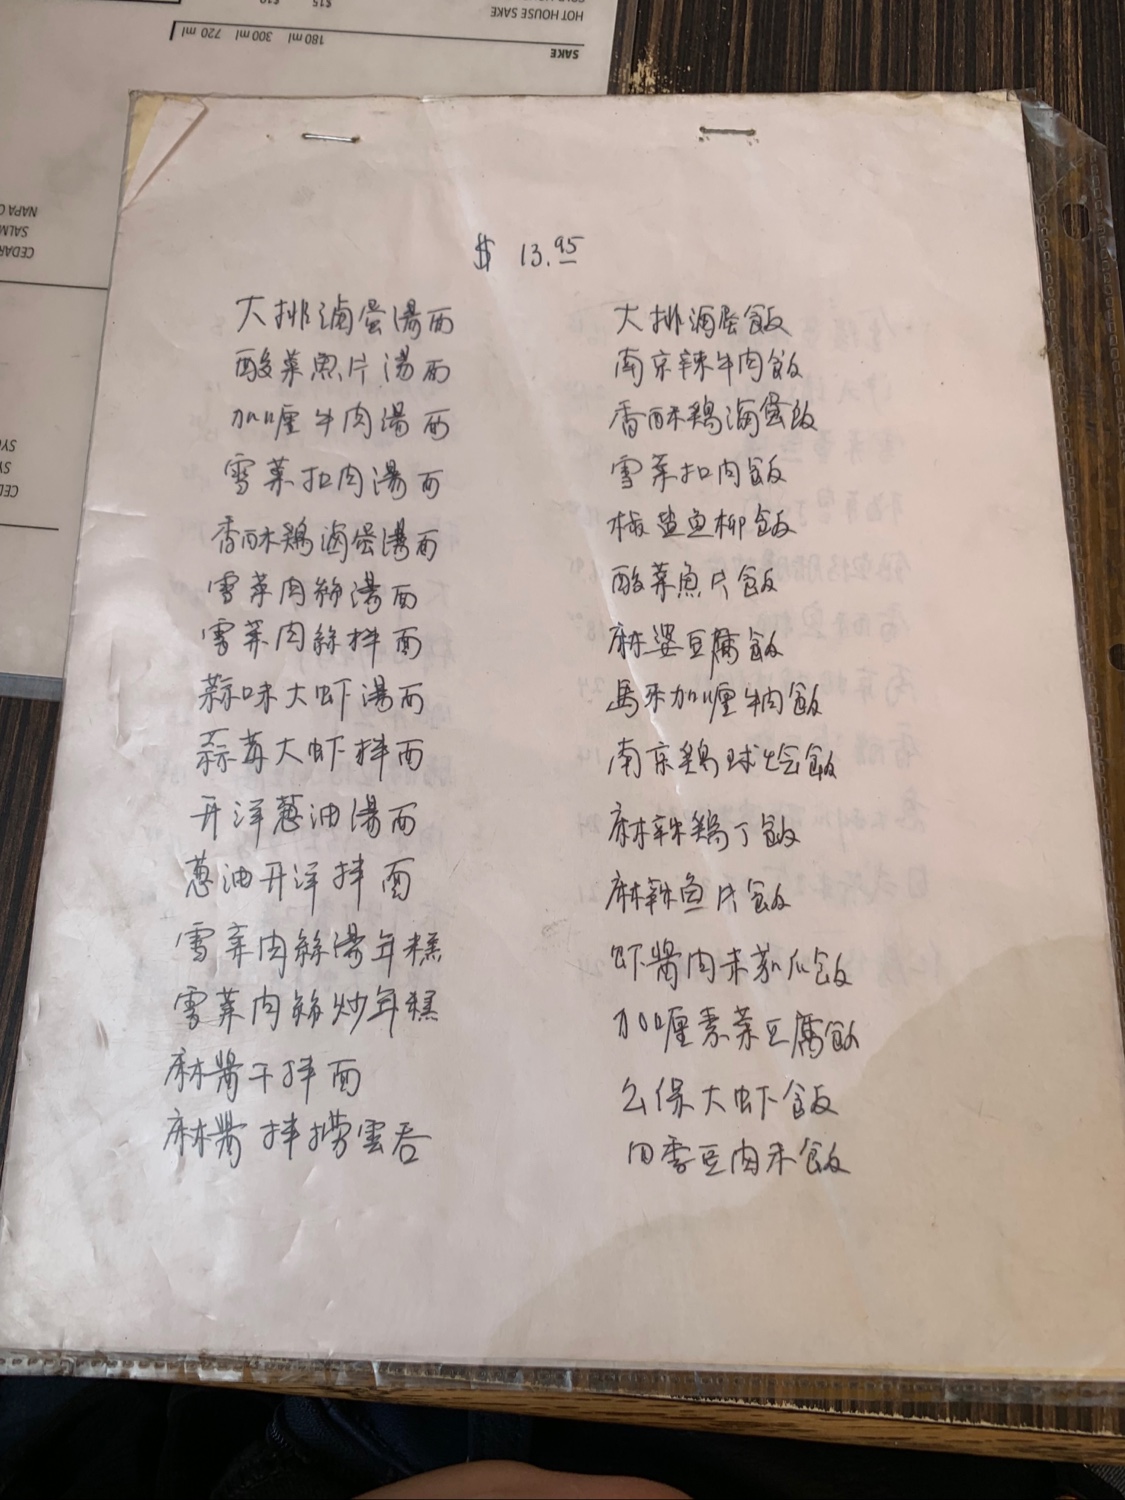 SAKE
180 ml 300 ml 720 ml
HOT HOUSE SAKE
$15
NAPA
SALM
CEDAR
$ 13.95
大排滷蛋湯面
酸菜魚片湯面
加喱牛肉湯面
雪菜扣肉湯面
香酥鶏滷蛋湯面
雪菜肉絲湯面
雪菜肉絲拌面
蒜味大虾湯面
蒜茸大虾拌面
开洋蔥油湯面
蔥油开洋拌面
雪菜肉絲湯年糕
雪菜肉絲炒年糕
麻醬干拌面
麻醬拌撈雲吞
大排滷蛋飯
南京辣牛肉飯
香酥鶏滷蛋飯
雪菜扣肉飯
椒盐鱼柳飯
酸菜魚片飯
麻婆豆腐飯
馬来加喱牛肉飯
南京鶏球烩飯
麻辣鶏丁飯
麻辣鱼片飯
虾醬肉末茄瓜飯
加喱素菜豆腐飯
公保大虾飯
四季豆肉末飯